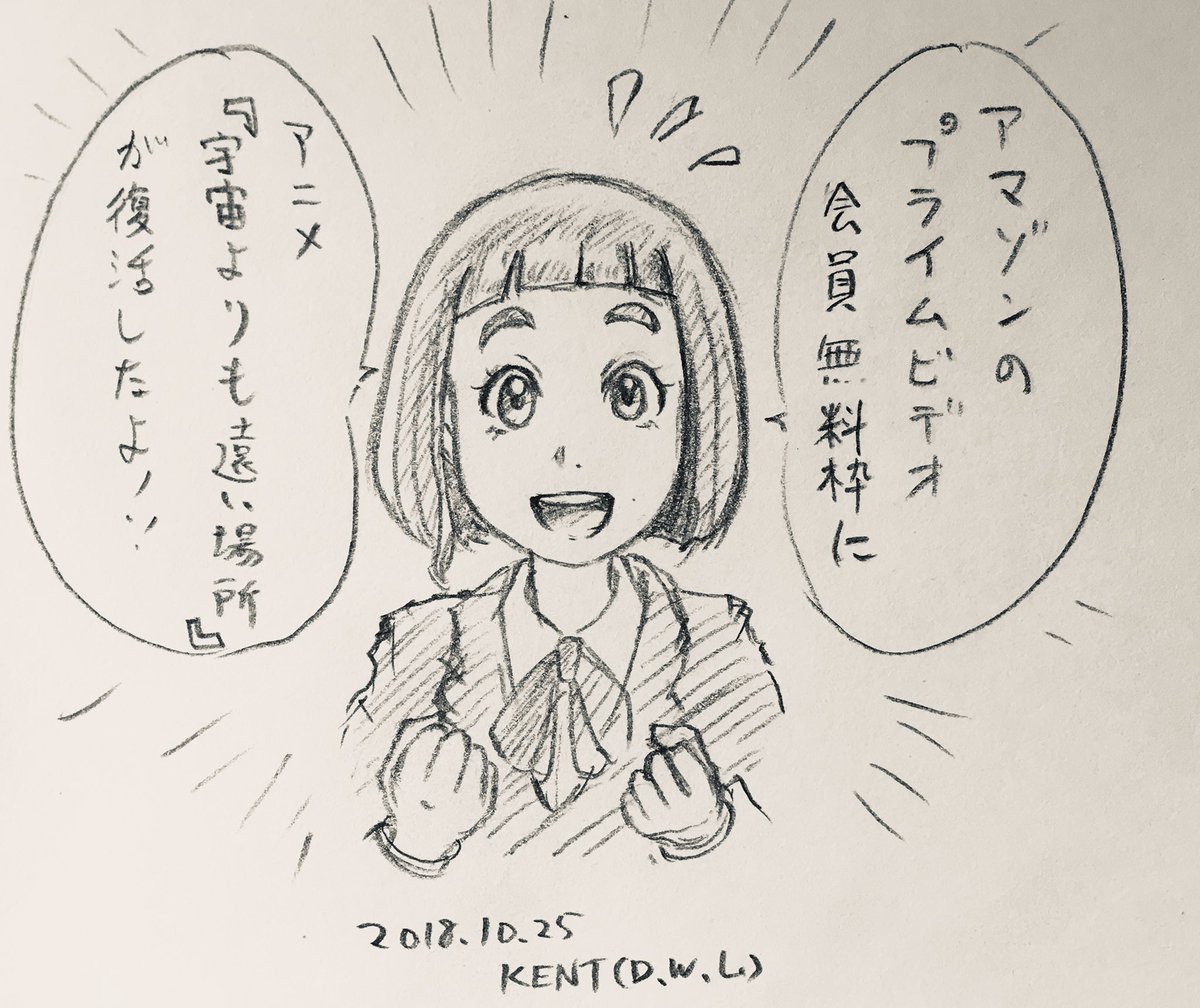 アマゾンの
プライムビデオ
会員無料枠に
アニメ
『宇宙よりも遠い場所』
が復活したよ!!
2018.10.25
KENT(D.W.L.)